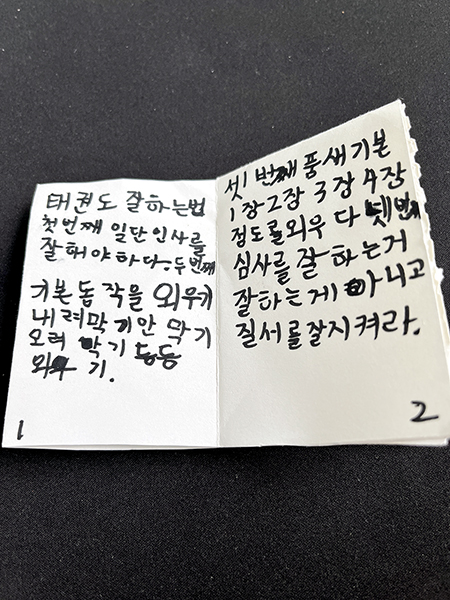 태권도 잘하는법
첫번째 일단 인사를
잘해야하다. 두번째
기본동작을 외우기
내려막기 안 막기
오려 막기 등등
외우기.
1
셋 번째 품새 기본
1장 2장 3장 4장
정도를 외우다 넷번째
심사를 잘하는거
잘하는게 아니고
질서를 잘지켜라.
2